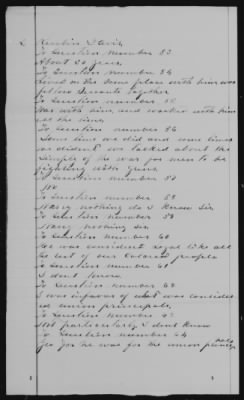 Reubin Davis
To Question number 53
About 20 years
To Question number 54
Lived on the same place with him was
fellow servants together
To Question number 55
Was with him and worked with him
all the time
To Question number 56
Some times we did and some times
we dident we talked about the
of the war for men to be
fighting
To Question number 57
No
To Question number 58
nothing do I know sir
To Question number 59
nothing sir
To Question number 60
He was consident loyal like all
the rest of our Colored people
To Question number 61
I dont know
To Question number 62
I was infavor of what was consider
ed union principals
To Question number 63
Not particularly I dont know
To Question number 64
Yes Sir he was for the union